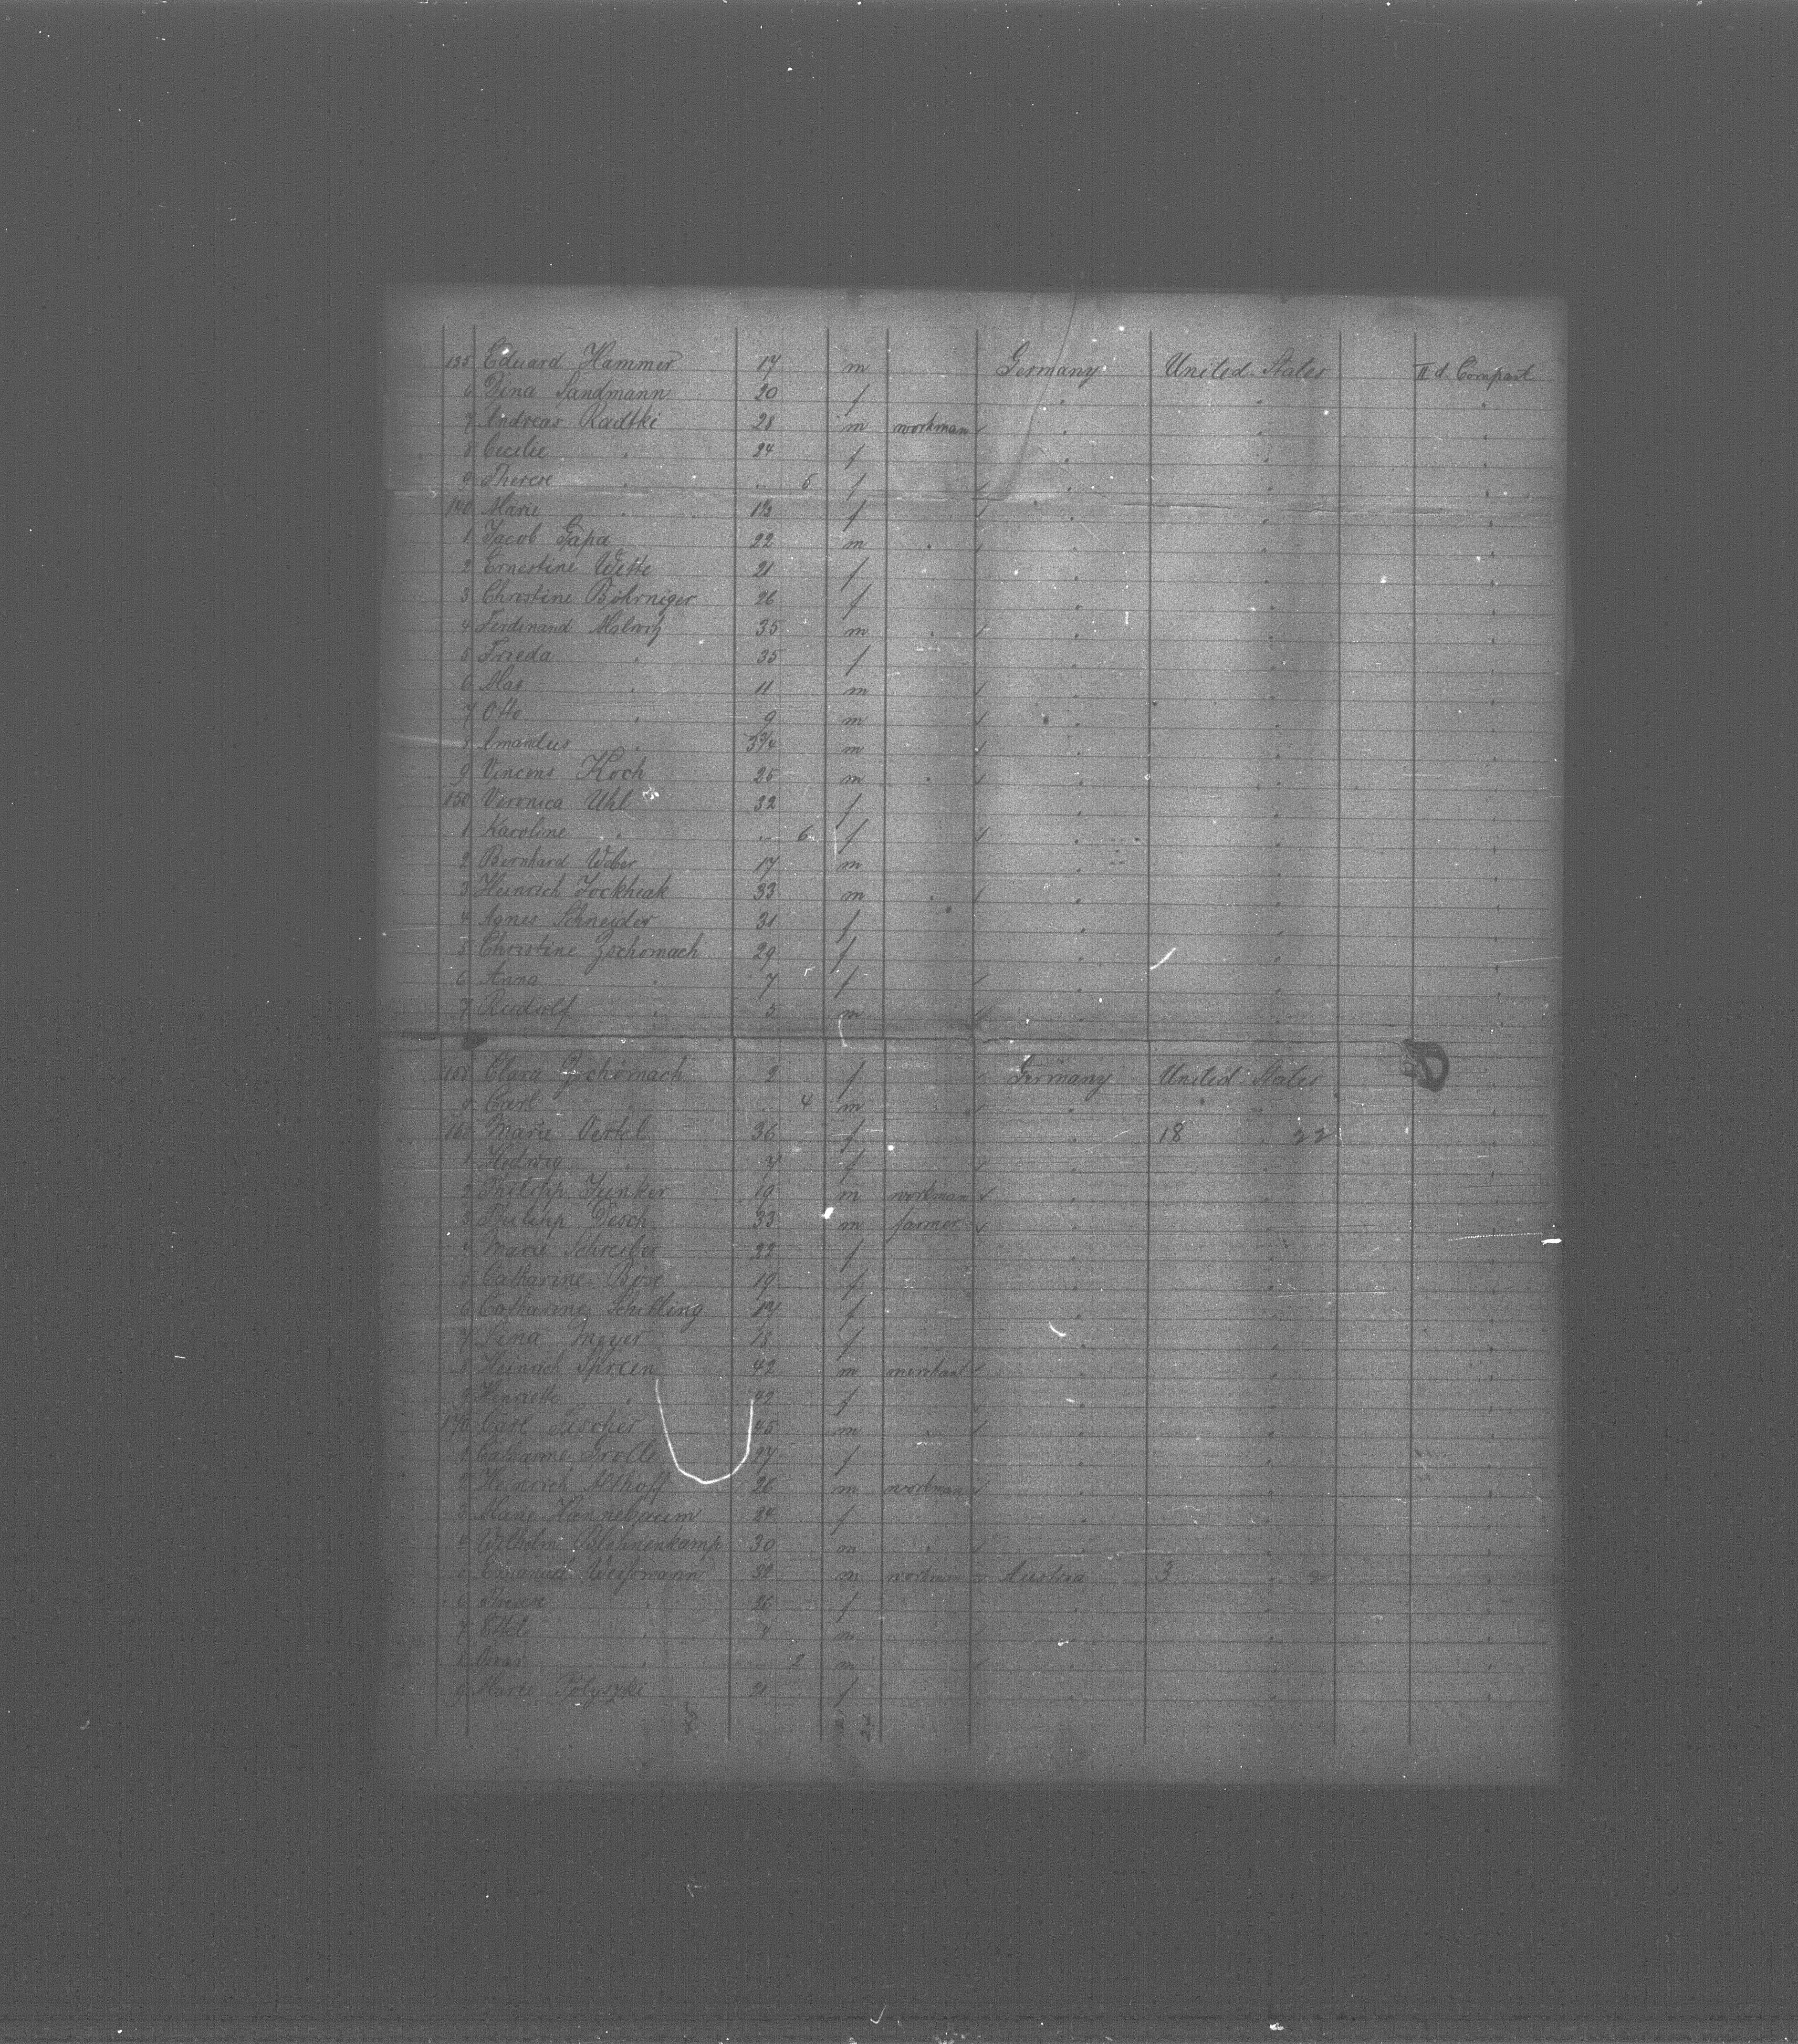 135 Eduard Hammer 17 m Germany United States II d. Compart
6 Dina Sandmann 20 f
7 Andreas Radtki 28 m workman
8 Cecilie " 24 f
9 Therese " .. 5 f
140 Marie " 1½ f
1 Jacob Gapa 22 m "
2 Ernestine Witte 21 f
3 Christine Böhrniger 26 f
4 Ferdinand 35 m "
5 Frieda " 35 f
6 Max " 11 m
7 Otto " 9 m
8 Amandus " 3¾ m
9 Vincens Koch 25 m "
150 Veronica Uhl 32 f
1 Karoline " .. 6 f
2 Bernhard Weber 17 m
3 Heinrich 33 m "
4 Agnes Schneider 31 f
5 Christine Zschornach 29 f
6 Anna " 7 f
7 Rudolf " 5 m
158 Clara Zschornach 2 f Germany United States
9 Carl " .. 4 m
160 Marie Oertel 36 f 18 22
1 Hedwig " 7 f
2 Philipp Junker 19 m workman
3 Philipp Desch 33 m farmer
4 Marie Schreiber 22 f
5 Catharine Böse 19 f
6 Catharine Schilling 17 f
7 Lina Meyer 18 f
8 Heinrich 42 m merchant
9 Henriette " 42 f
170 Carl Fischer 45 m "
1 Catharine 27 f
2 Heinrich Althoff 26 m workman
3 Marie Hannebaum 24 f
4 Wilhelm Blohmenkamp 30 m "
5 Emanuel Weissmann 32 m workman Austria 3 2
6 Therese " 26 f
7 Ettel " 4 m
8 Oscar " .. 2 m
9 Marie Polyszki 21 f